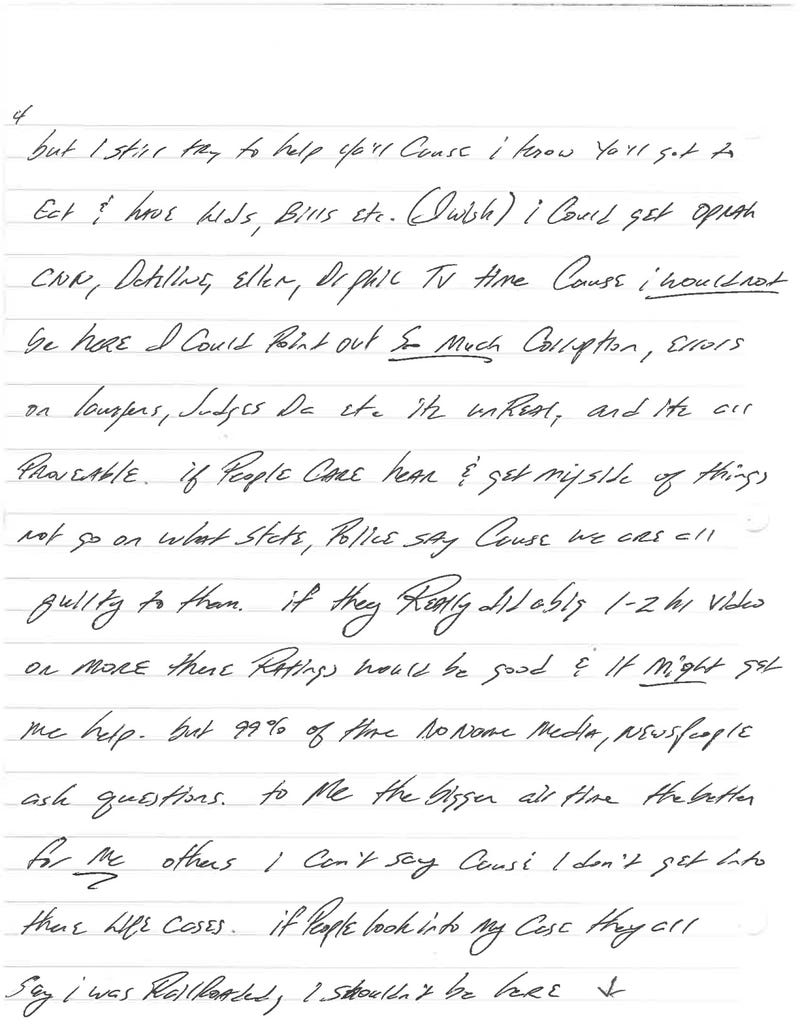 4
but I still try to help ya'll Cause i know Ya'll got to
Eat & have kids, Bills etc. (I wish) i Could get OPRAH
CNN, Dateline, Ellen, Dr phil TV time Cause i would not
be here I Could Point out So Much Corruption, Errors
on lawyers, Judges Da etc its unREAL, and its all
PROVEABLE. if PEOPLE CARE hear & get my side of things
not go on what State, Police SAY Cause we are all
guilty to them. if they REally did a big 1-2 hr video
or MORE there Ratings would be good & it Might get
me help. but 99% of time No Name Media, NEWS People
ask questions. to Me the bigger air time the better
for Me others I Can't say Cause I don't get into
there LIFE CASES. if People look into My Case they all
Say i was RailRoaded, I shouldn't be here ↓